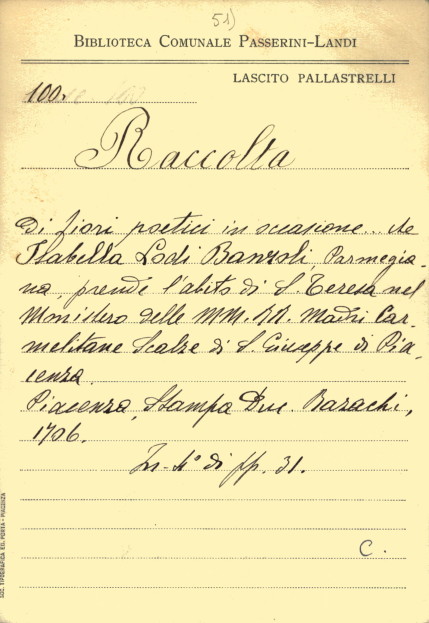 51)
BIBLIOTECA COMUNALE PASSERINI-LANDI
LASCITO PALLASTRELLI
100.
Raccolta
Di fiori poetici in occasione... che
Isabella Lodi Banzoli, Parmegia-
na prende l'abito di S. Teresa nel
Monistero delle MM. RR. Madri Car-
melitane Scalze di S. Giuseppe di Pia-
cenza.
Piacenza, Stampa Duc. Bazachi,
1706.
In-4° di pp. 31.
C.
SOC. TIPOGRAFICA ED. PORTA - PIACENZA